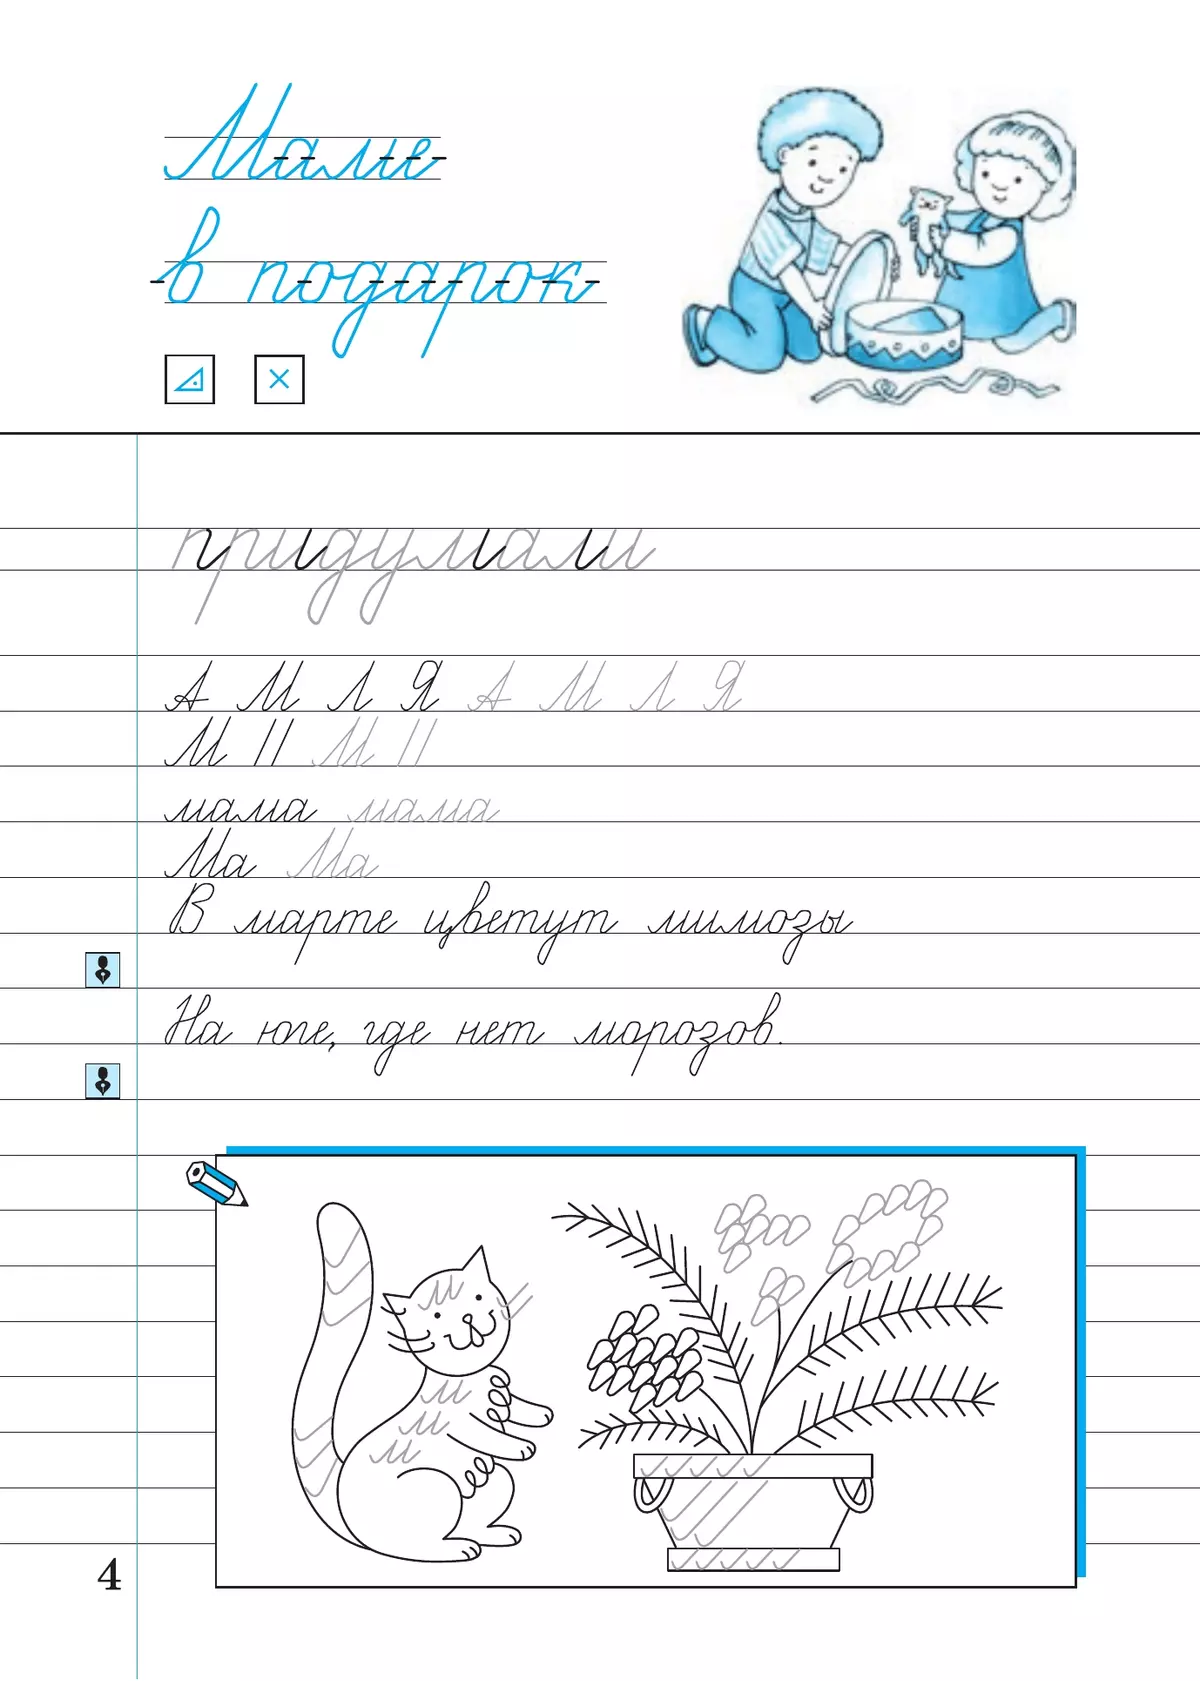 Маме
в подарок
придумали
А М Л Я А М Л Я
М М
мама мама
Ма Ма
В марте цветут мимозы
На юге, где нет морозов.
м
м
м
м
4